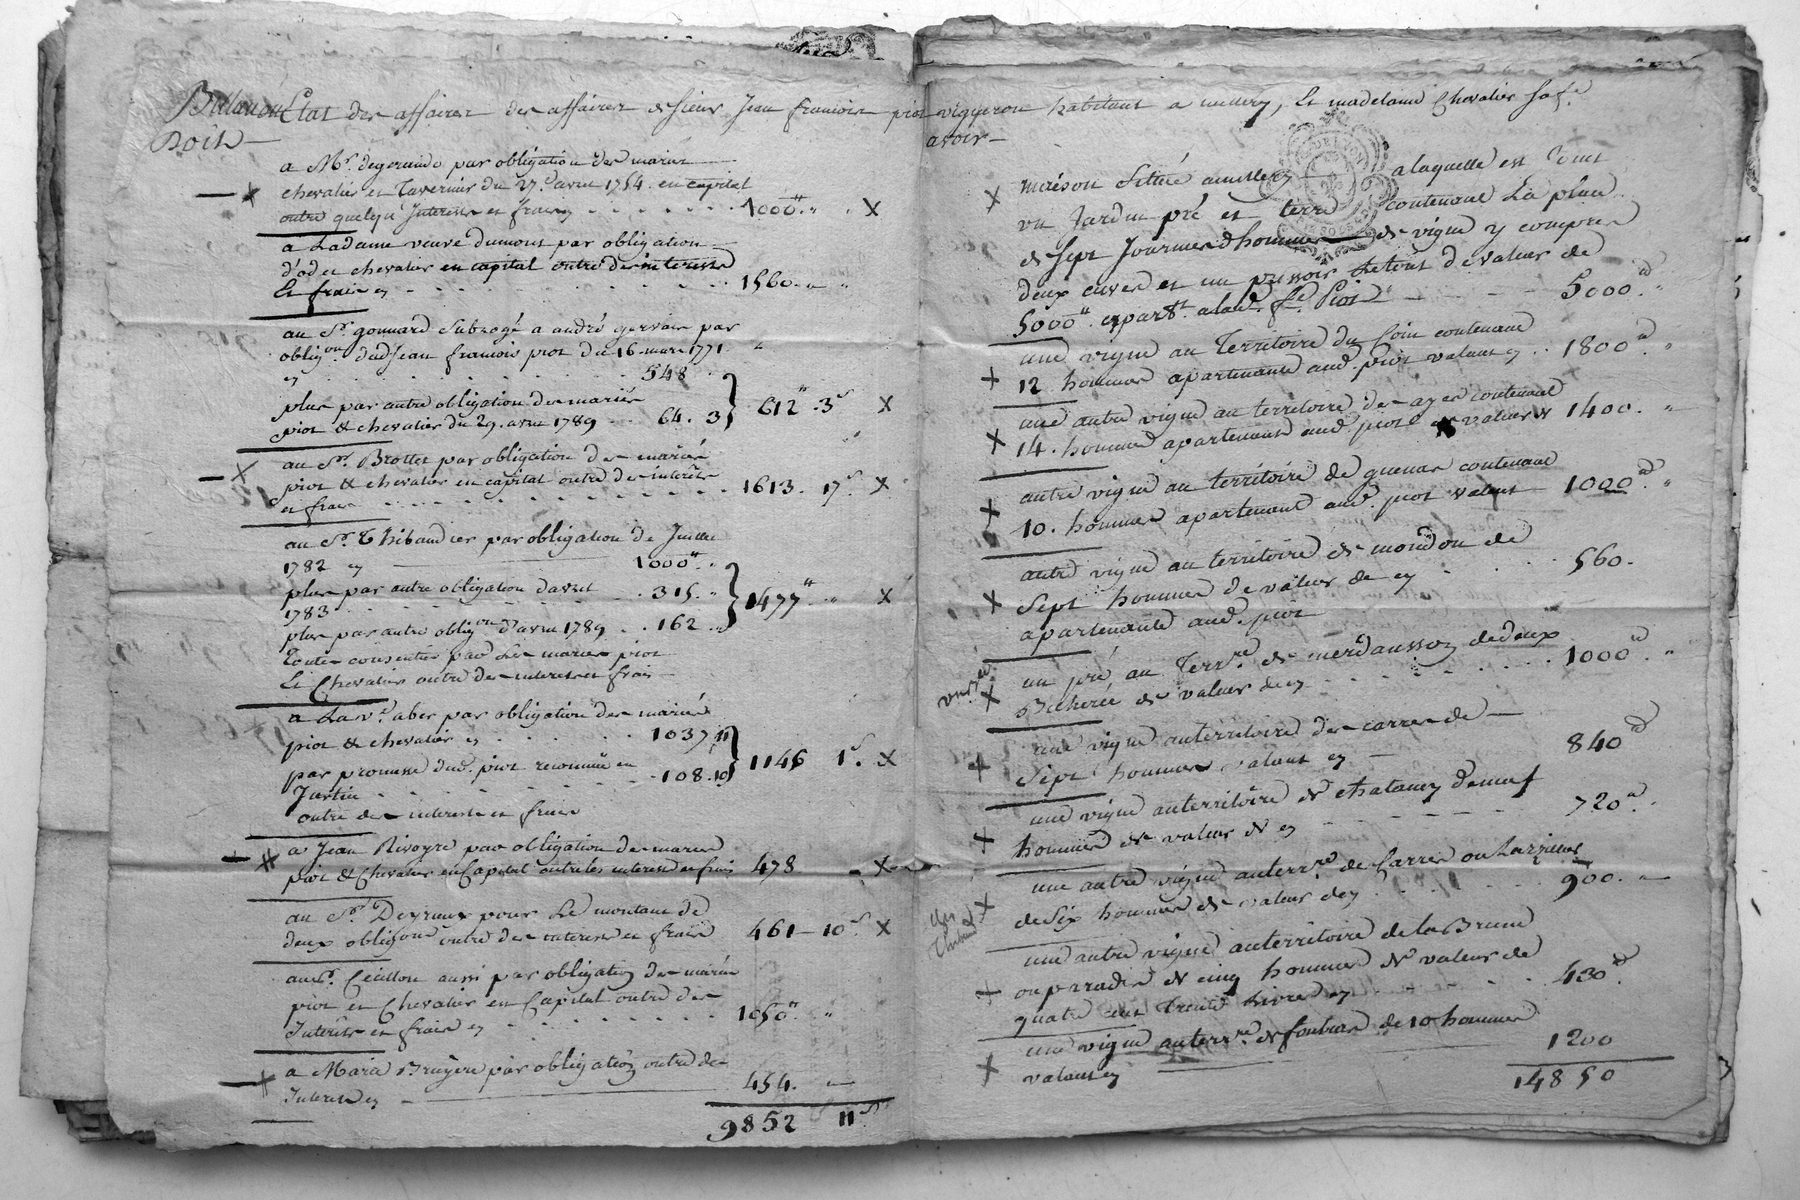 Billan ou Etat des affaires des affaires de sieur Jean francois piot vigneron habitant a millery, Et madelaine Chevalier sa fe.
Doit
a Mr. degerando par obligation des mariés
chevalier et Tavernier du 27e avril 1754. en capital
outre quelqu Interets et frais 1000tt
a Ladame veuve dumont par obligation
d'odet chevalier en capital outre des interests
Et frais cy 1560
au Sr. gonnard Subrogé a andré gervais par
obligon dud Jean francois piot du 16 mars 1771
cy 548
plus par autre obligation des mariés
piot & chevalier du 29. avril 1789 64. 3 612tt 3s
au Sr. Brottet par obligation des mariés
piot & chevalier en capital outre des intérêts
et frais 1613. 17s
au Sr. Thibaudier par obligation de Juillet
1782 cy 1000tt
plus par autre obligation davril
1783 315
plus par autre obligon d'avril 1789 162 1477tt
Toutes consenties par Les mariés piot
Et Chevalier outre des interets et frais
a La ve. aber par obligation des mariés
piot & chevalier cy 1037. 11
par promesse dud. piot reconnue en
Justice 108. 10 1146 1s
outre des interets et frais
a Jean Rivoyre par obligation des mariés
piot & Chevalier en Capital outre les interest et frais 478
au Sr. Deyrieux pour Le montant de
deux obligons outre des interest et frais 461 - 10s
au Sr. Ceillon aussi par obligation des mariés
piot et Chevalier en Capital outre des
Intérêts et frais cy 1050tt
a Marie Bruyère par obligation outre des
Interets cy 454.
9852 11s
avoir
maison Située a millery a laquelle est Joint
un Jardin pré et terre contenant La place
de Sept Journées d'hommes de vigne y compris
deux cuves et un pressoir Le tout de valeur de
5000tt cy part. a lad. fe. Piot 5000tt
une vigne au Territoire du Coin contenant
12. hommes apartenante aud. piot valant cy 1800tt
une autre vigne au territoire des ayes contenant
14. hommes apartenant aud. piot valeur 1400.
autre vigne au territoire de contenant
10. hommes apartenant aud. piot valant 1000tt
autre vigne au territoire de moridon de
Sept hommes de valeur de cy 560.
apartenante aud. piot
un pré au Terrre. de merdausson de deux
Bicherée de valeur de cy 1000tt
une vigne au territoire des carres de
Sept hommes valant cy 840tt
une vigne au territoire de chataney de neuf
hommes de valeur de cy 720tt
une autre vigne au terrre de Carres ou
de Six hommes de valeur de cy 900.
des
une autre vigne au territoire de la Brune
ou paradis de cinq hommes de valeur de
quatre cent Trente Livres cy 430tt
une vigne au terrre. de fontbas de 10 hommes
valant cy 1200
14850